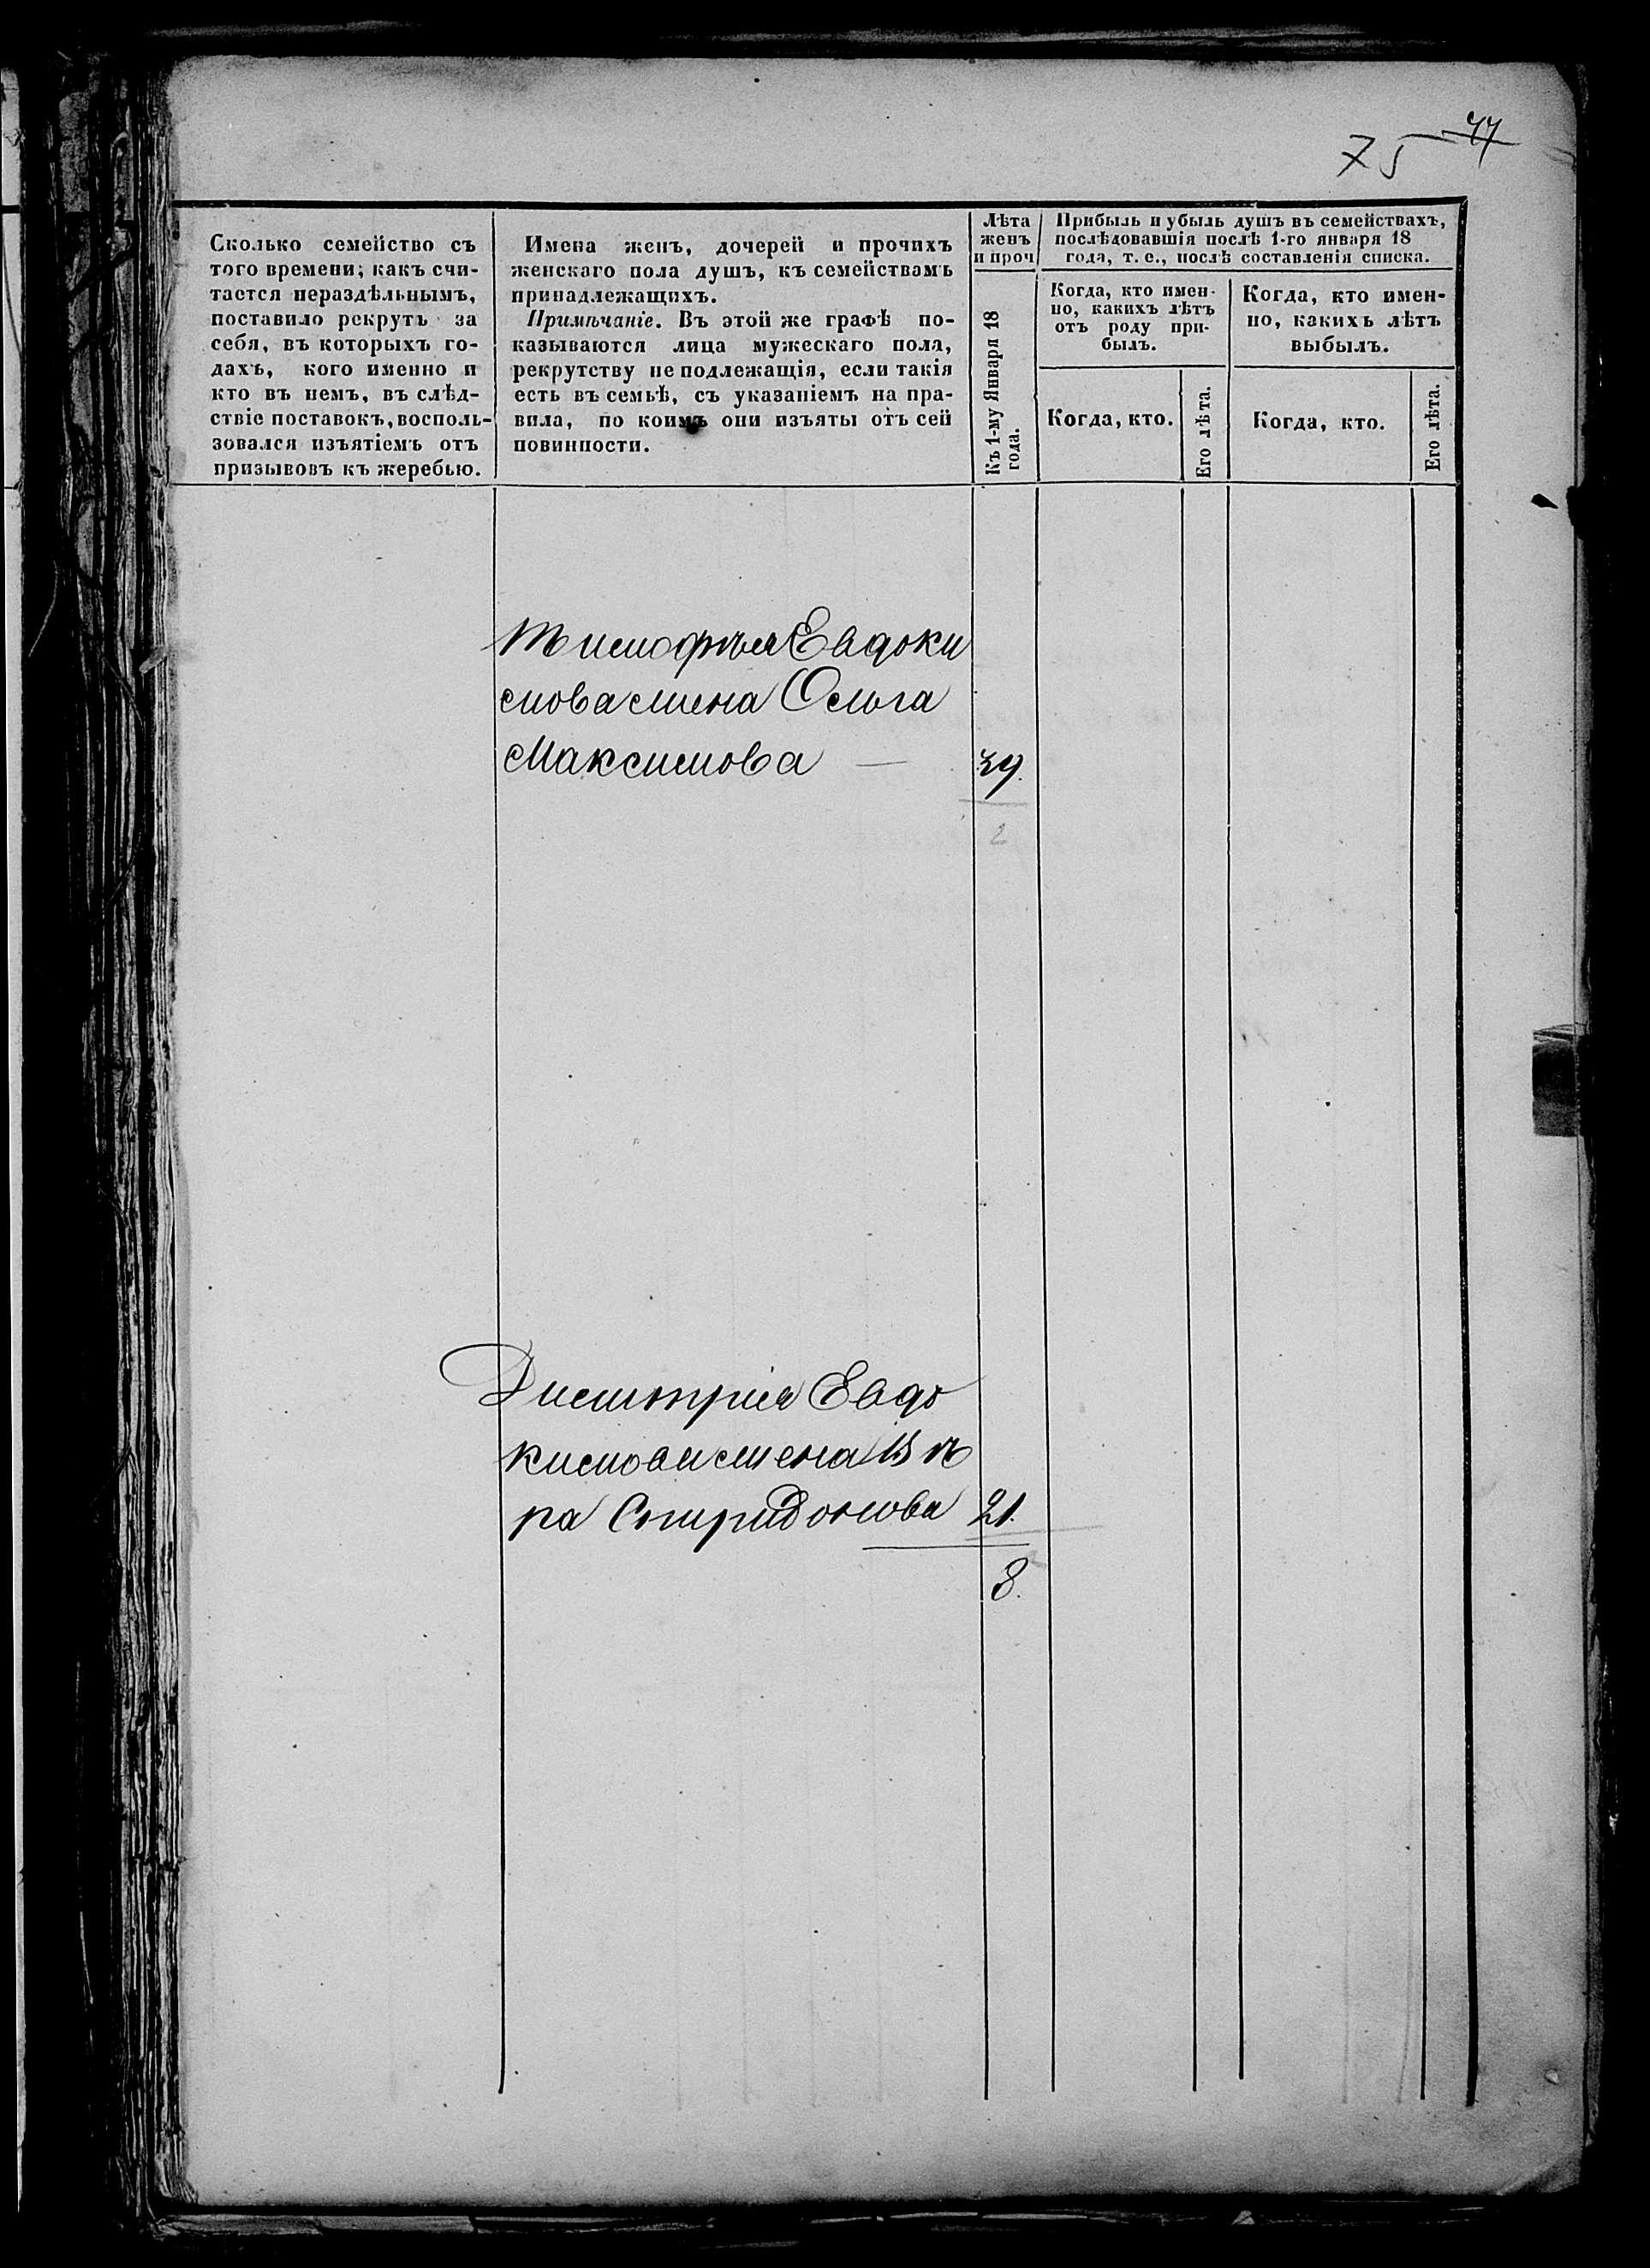 77
75
Сколько семейство съ
того времени, какъ счи-
тается нераздѣльнымъ,
поставило рекрутъ за
себя, въ которыхъ го-
дахъ, кого именно и
кто въ немъ, въ слѣд-
ствіе поставокъ, восполь-
зовался изъятіемъ отъ
призывовъ къ жеребью.
Имена женъ, дочерей и прочихъ
женскаго пола душъ, къ семействамъ
принадлежащихъ.
Примѣчаніе. Въ этой же графѣ по-
казываются лица мужескаго пола,
рекрутству не подлежащія, если такія
есть въ семьѣ, съ указаніемъ на пра-
вила, по коимъ они изъяты отъ сей
повинности.
Лѣта
женъ
и проч
Къ 1-му Января 18
года.
Прибыль и убыль душъ въ семействахъ,
послѣдовавшія послѣ 1-го января 18
года, т. е., послѣ составленія списка.
Когда, кто имен-
но, какихъ лѣтъ
отъ роду при-
былъ.
Когда, кто.
Его лѣта.
Когда, кто имен-
но, какихъ лѣтъ
выбылъ.
Когда, кто.
Его лѣта.
Тимофѣя Евдоки
мова жена Ольга
Максимова — 39.
2
Димитрія Евдо
кимова жена Вѣ
ра Спиридонова 21.
8.